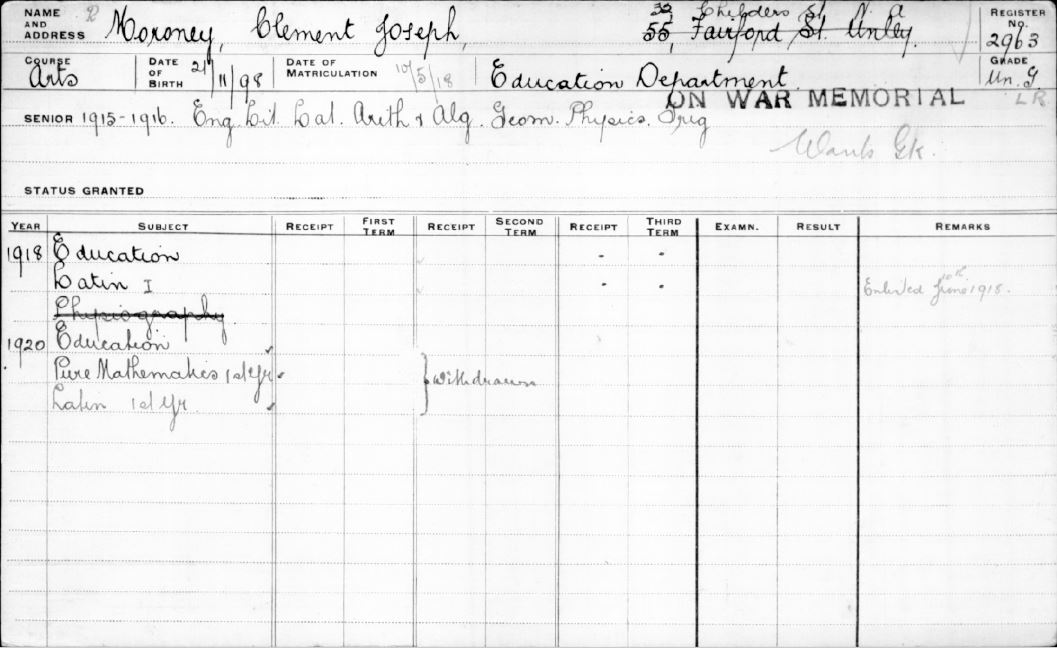 NAME AND ADDRESS Moroney, Clement Joseph, 39, Childers St. N. A
55, Fairford St. Unley.
REGISTER No. 2963
COURSE Arts DATE OF BIRTH 21/11/98 DATE OF MATRICULATION 10/5/18 Education Department GRADE Un. G
ON WAR MEMORIAL L R
SENIOR 1915-1916. Eng. Lit. Lat. Arith & Alg. Geom. Physics. Trig
Wants Gk.
STATUS GRANTED
YEAR SUBJECT RECEIPT FIRST TERM RECEIPT SECOND TERM RECEIPT THIRD TERM EXAMN. RESULT REMARKS
1918 Education
Latin I Enlisted 10th June 1918.
Physiography
1920 Education ✓
Pure Mathematics 1st Yr ✓ } Withdrawn
Latin 1st Yr. ✓